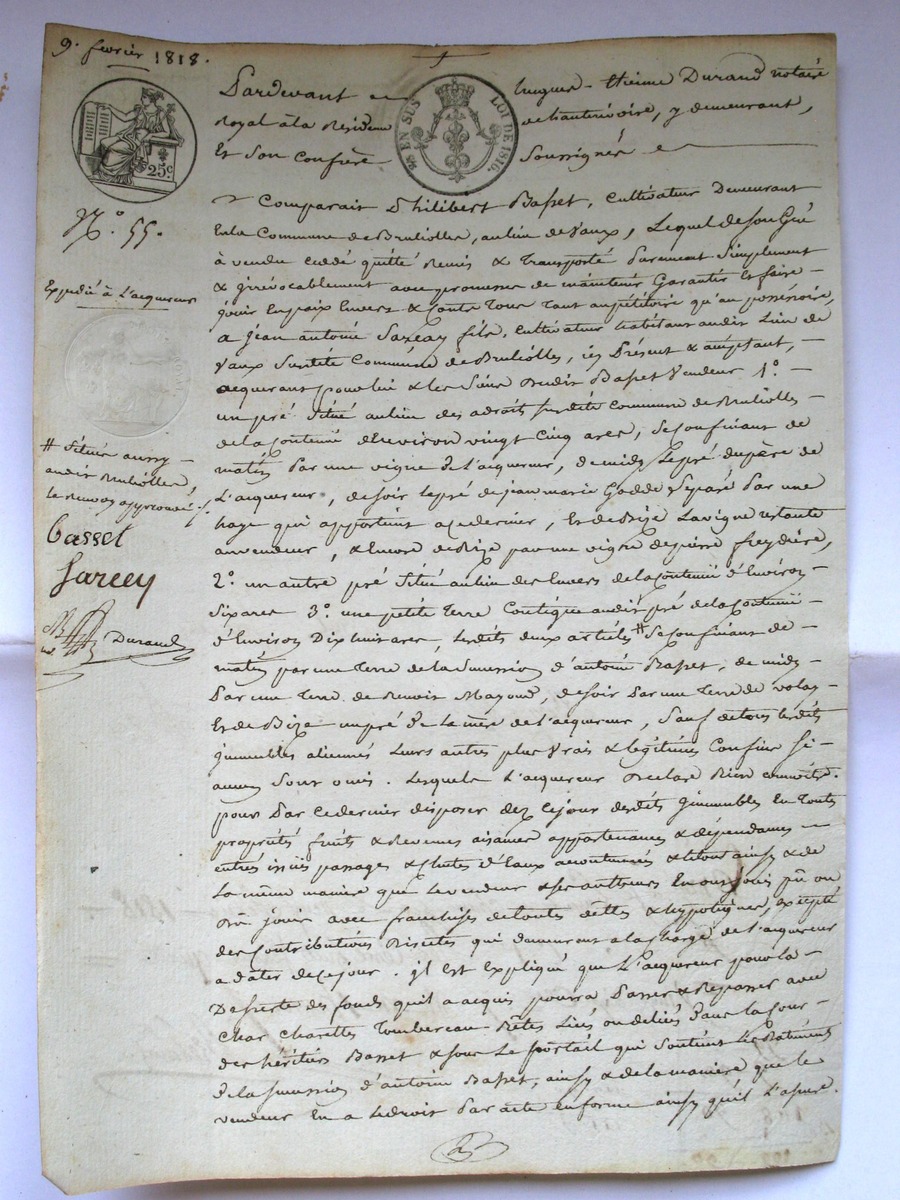 9. fevrier 1818.
25c
EN SUS
LOI DE 1816.
N.° 55.
Expedié à L'acquereur
# Situés aussy
audit Brulliolles,
le renvoy approuvé
Basset
Sarcey
Durand
Pardevant hugues - Etienne Durand notaire
Royal à la Residence de hauterivoire, y demeurant,
Et Son Confrère Soussignés
Comparait Philibert Basset, Cultivateur Demeurant
En la Commune de Brulliolles, au lieu de Vaux, Lequel de Son Gré
à vendu cedé quitté Remis & Transporté Purement Simplement
& irrévocablement avec promesse de maintenir Garantir Et faire
jouir En paix Envers & Contre Tous Tant au pétitoire qu'au possessoire,
a Jean antoine Sarcey fils, Cultivateur habitant audit Lieu de
Vaux Susdite Commune de Brulliolles, ici Présent & acceptant,
acquerant pour lui & les Siens Dudit Basset Vendeur 1.°
un pré Situé au lieu des adroits Susdite commune de Brulliolles
de la Contenue d'Environ vingt Cinq ares, Se Confinant de
matin Par une vigne de L'acquereur, de midy Le pré du père de
L'acquereur, de Soir le pré de jean marie Godde Separé Par une
haye qui appartient a ce dernier, Et de Bize La vigne restante
au vendeur, & Encore de Bize par une vigne de pierre freydière,
2.° un autre pré Situé au lieu des Envers de la Contenue d'Environ
Six ares 3.° une petite Terre Contigue audit pré de la Contenue
d'Environ Dix huit ares, Lesdits deux articles # Se Confinant de
matin par une Terre de la Succession d'antoine Basset, de midy
Par une Terre de Benoit Mayoud, de Soir Par une Terre de volay
Et de Bize un pré de la mère de L'acquereur, Sauf de tous lesdits
immeubles alienés Leurs autres plus Vrais & legitimes Confins Si
aucuns Sont omis. Lesquels L'acquereur Declare Bien connoitre.
pour Par ce dernier disposer dez ce jour desdits immeubles En Toute
propriété fruits & Revenus aisances appartenances & dépendances
entrées issües passages & chutes d'Eaux acoutumées & le tout ainsy & de
La même manière que Le vendeur & Ses autheurs En ont joui pû ou
dû jouir avec franchises de toutes dettes & hypotèques, excepté
des Contributions Directes qui demeurent a la charge de L'acquereur
a dater de ce jour. il Est Expliqué que L'acquereur pour la
Desserte des fonds qu'il a acquis pourra Passer & Repasser avec
Char Charettes Tombereau Bêtes Liés ou deliés Dans la Cour
des héritiers Basset & Sous Le portail qui Soutient Les Batiments
de la Succession d'antoine Basset, ainsy & de la manière que le
vendeur En a Le droit Par acte en forme ainsy qu'il L'assure.